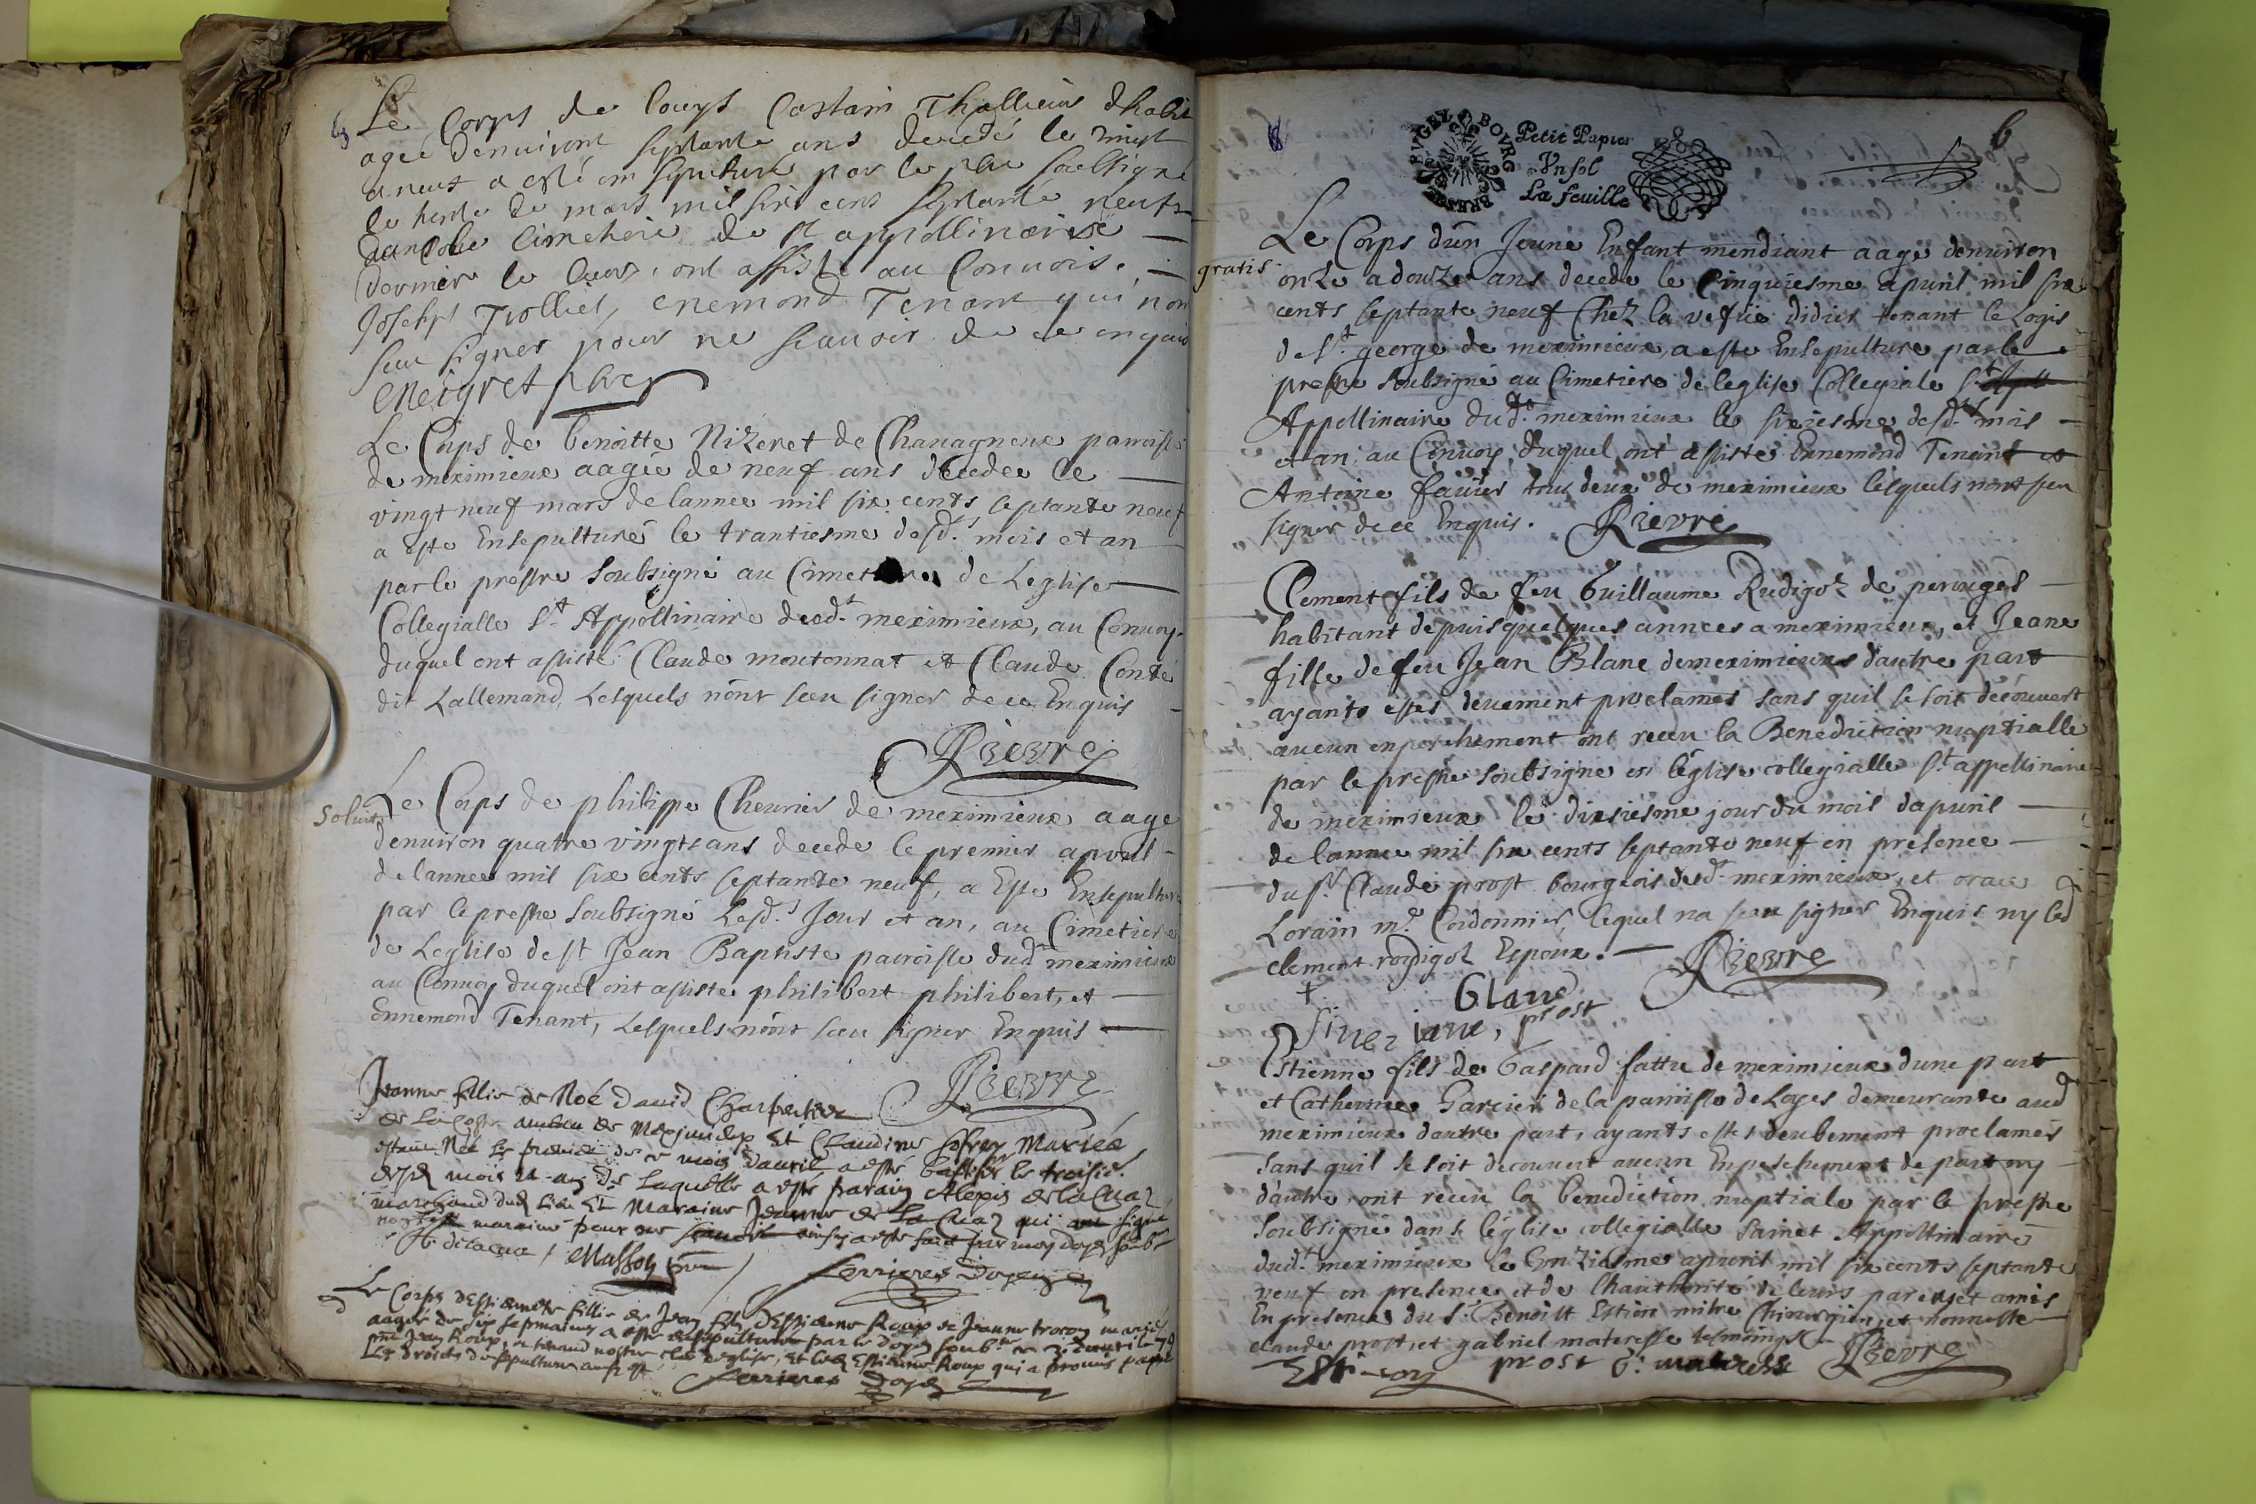 Le Corps de Louys Costain Thollieur dhabit
agee denuiront septante ans decedé le vingt
a neuf a esté en sepulture par le pbre soubsigné
le trente de mars mil six cens septante neufs
dans le cimetiere de st appollinaire
derniere le Cuor, ont assisté au Convois.
Joseph Trolliet, enemond Tenant qui non
seu signer pour ne scauoir de ce enquis
Meigret pbre
Le Corps de benoitte Nizeret de Chanagneux parroisse
de meximieux aagée de neuf ans decedee le
vingt neuf mars de lannee mil six cents septante neuf
a este Ensepulturé le trantiesme desd.ts mois et an
par le prestre soubsigné au Cimetiere de Leglise
Collegialle St Appollinaire dud.t meximieux, au Convoy
duquel ont assisté Claude moutonnat et Claude Conte
dit Lallemand, Lesquels nont sceu signer de ce Enquis
Rievre
soluit
Le Corps de philippe Cheurier de meximieux aage
denuiron quatre vingts ans decede le premier apvril
de lannee mil six cents septante neuf, a Este Ensepulturé
par le prestre soubsigné Lesd.ts Jour et an, au Cimetiere
de Leglise de st Jean Baptiste parroisse dud.t meximieux
au Convoy duquel ont assisté philibert philibert, et
Ennemond Tenant, Lesquels nont sceu signer Enquis
Rievre
Jeanne fillie de Noé David Charpentier
de La Coste de Meximieux Et Claudine Mariés
estant Née le premier de ce mois d'auril a esté baptisée le troisie.
desd mois et an de Laquelle a esté parain Alexis delaCua
marchand dud lieu Et Maraine Jeanne de La Cua qui signé
non maraine pour ne scauoir ainsy a este fait par moy doyen soubs
delacua / Masson
Ferrieres doyen
Le Corps dEstiennette fillie de Jean fils dEstienne Roup et Jeanne mariés
aagée de six sepmaines a este ensepulturée par le doyen soub.ne
Jean Roup, nostre eglise, Et led Estienne Roup qui a promis payer
Les droits de sepulture
Ferrieres Doyen
6
BOVRG BRESSE BVGEY
Petit Papier
Vn sol
La feuille
gratis
Le Corps dun Jeune Enfant mendiant aage denuiron
onze a douze ans decede le Cinquiesme apuril mil six
cents septante neuf Chez la vefue didier tenant le Logis
de St george de meximieux, a este Ensepulture par le
prestre soubsigné au Cimetiere de leglise Collegiale St
Appollinaire dud.t meximieux le sixiesme desd.ts mois
et an. au Convoy duquel ont assistés Ennemond Tenant et
Antoine fauier tous deux de meximieux lesquels nont sceu
signer de ce Enquis. Rievre
Clement fils de feu Guillaume Rudigoz de perouges
habitant depuis quelques années a meximieux, et Jeane
fille de feu Jean Blanc de meximieux dautre part
ayants estés deuement proclamés sans quil se soit découvert
aucun enpeschement ont receu la Benediction nuptialle
par le prestre soubsigné en léglise collegialle St appollinaire
de meximieux le dixsiesme jour du mois dapuril
de lannee mil six cents septante neuf en présence
du sr. Claude prost bourgeois dud.t meximieux, et orace
Lorain m.e Cordonnier lequel na sceu signer Enquis ny led
clement rodigoz Espoux. Rievre
prost
Estienne fils de Gaspard fattu de meximieux dune part
et Catherine Garcier de la parroisse de Loyes demeurante aud
meximieux dautre part, ayants estés deubement proclamés
sans quil se soit decouvert aucun Enpeschement de part ny
dautre, ont receu la benediction nuptiale par le prestre
soubsigné dans léglise collegialle Sainct Appollinaire
dud.t meximieux Le Onziesme apuril mil six cents septante
neuf en presence et de Lhauthorité de leurs parens et amis
En presence du s.r Benoist Estienne Chirurgien et honneste
claude prost, et gabriel materesse tesmoings
prost G: materesse Rievre